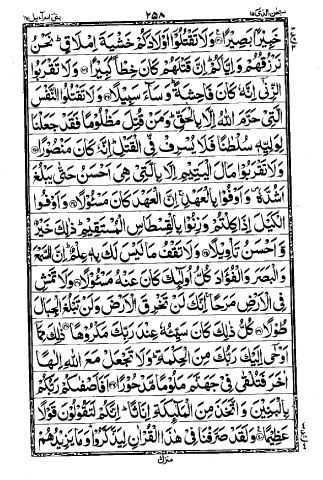 سبحٰن الذی ۱۵ ۲۵۸ بنی اسرآءیل ۱۷
خَبِيْرًۢا بَصِيْرًا وَلَا تَقْتُلُوْۤا اَوْلَادَكُمْ خَشْيَةَ اِمْلَاقٍ نَحْنُ
نَرْزُقُهُمْ وَاِيَّاكُمْ اِنَّ قَتْلَهُمْ كَانَ خِطْاً كَبِيْرًا وَلَا تَقْرَبُوا
الزِّنٰۤى اِنَّهٗ كَانَ فَاحِشَةً وَسَآءَ سَبِيْلًا وَلَا تَقْتُلُوا النَّفْسَ
الَّتِيْ حَرَّمَ اللّٰهُ اِلَّا بِالْحَقِّ وَمَنْ قُتِلَ مَظْلُوْمًا فَقَدْ جَعَلْنَا
لِوَلِيِّهٖ سُلْطٰنًا فَلَا يُسْرِفْ فِّى الْقَتْلِ اِنَّهٗ كَانَ مَنْصُوْرًا
وَلَا تَقْرَبُوْا مَالَ الْيَتِيْمِ اِلَّا بِالَّتِيْ هِيَ اَحْسَنُ حَتّٰى يَبْلُغَ
اَشُدَّهٗ وَاَوْفُوْا بِالْعَهْدِ اِنَّ الْعَهْدَ كَانَ مَسْـُٔوْلًا وَاَوْفُوا
الْكَيْلَ اِذَا كِلْتُمْ وَزِنُوْا بِالْقِسْطَاسِ الْمُسْتَقِيْمِ ذٰلِكَ خَيْرٌ
وَّاَحْسَنُ تَاْوِيْلًا وَلَا تَقْفُ مَا لَيْسَ لَكَ بِهٖ عِلْمٌ اِنَّ السَّمْعَ
وَالْبَصَرَ وَالْفُؤَادَ كُلُّ اُولٰٓئِكَ كَانَ عَنْهُ مَسْـُٔوْلًا وَلَا تَمْشِ
فِى الْاَرْضِ مَرَحًا اِنَّكَ لَنْ تَخْرِقَ الْاَرْضَ وَلَنْ تَبْلُغَ الْجِبَالَ
طُوْلًا كُلُّ ذٰلِكَ كَانَ سَيِّئُهٗ عِنْدَ رَبِّكَ مَكْرُوْهًا ذٰلِكَ مِمَّاۤ
اَوْحٰۤى اِلَيْكَ رَبُّكَ مِنَ الْحِكْمَةِ وَلَا تَجْعَلْ مَعَ اللّٰهِ اِلٰهًا
اٰخَرَ فَتُلْقٰى فِيْ جَهَنَّمَ مَلُوْمًا مَّدْحُوْرًا اَفَاَصْفٰىكُمْ رَبُّكُمْ
بِالْبَنِيْنَ وَاتَّخَذَ مِنَ الْمَلٰٓئِكَةِ اِنَاثًا اِنَّكُمْ لَتَقُوْلُوْنَ قَوْلًا
عَظِيْمًا وَلَقَدْ صَرَّفْنَا فِيْ هٰذَا الْقُرْاٰنِ لِيَذَّكَّرُوْا وَمَا يَزِيْدُهُمْ
منزل